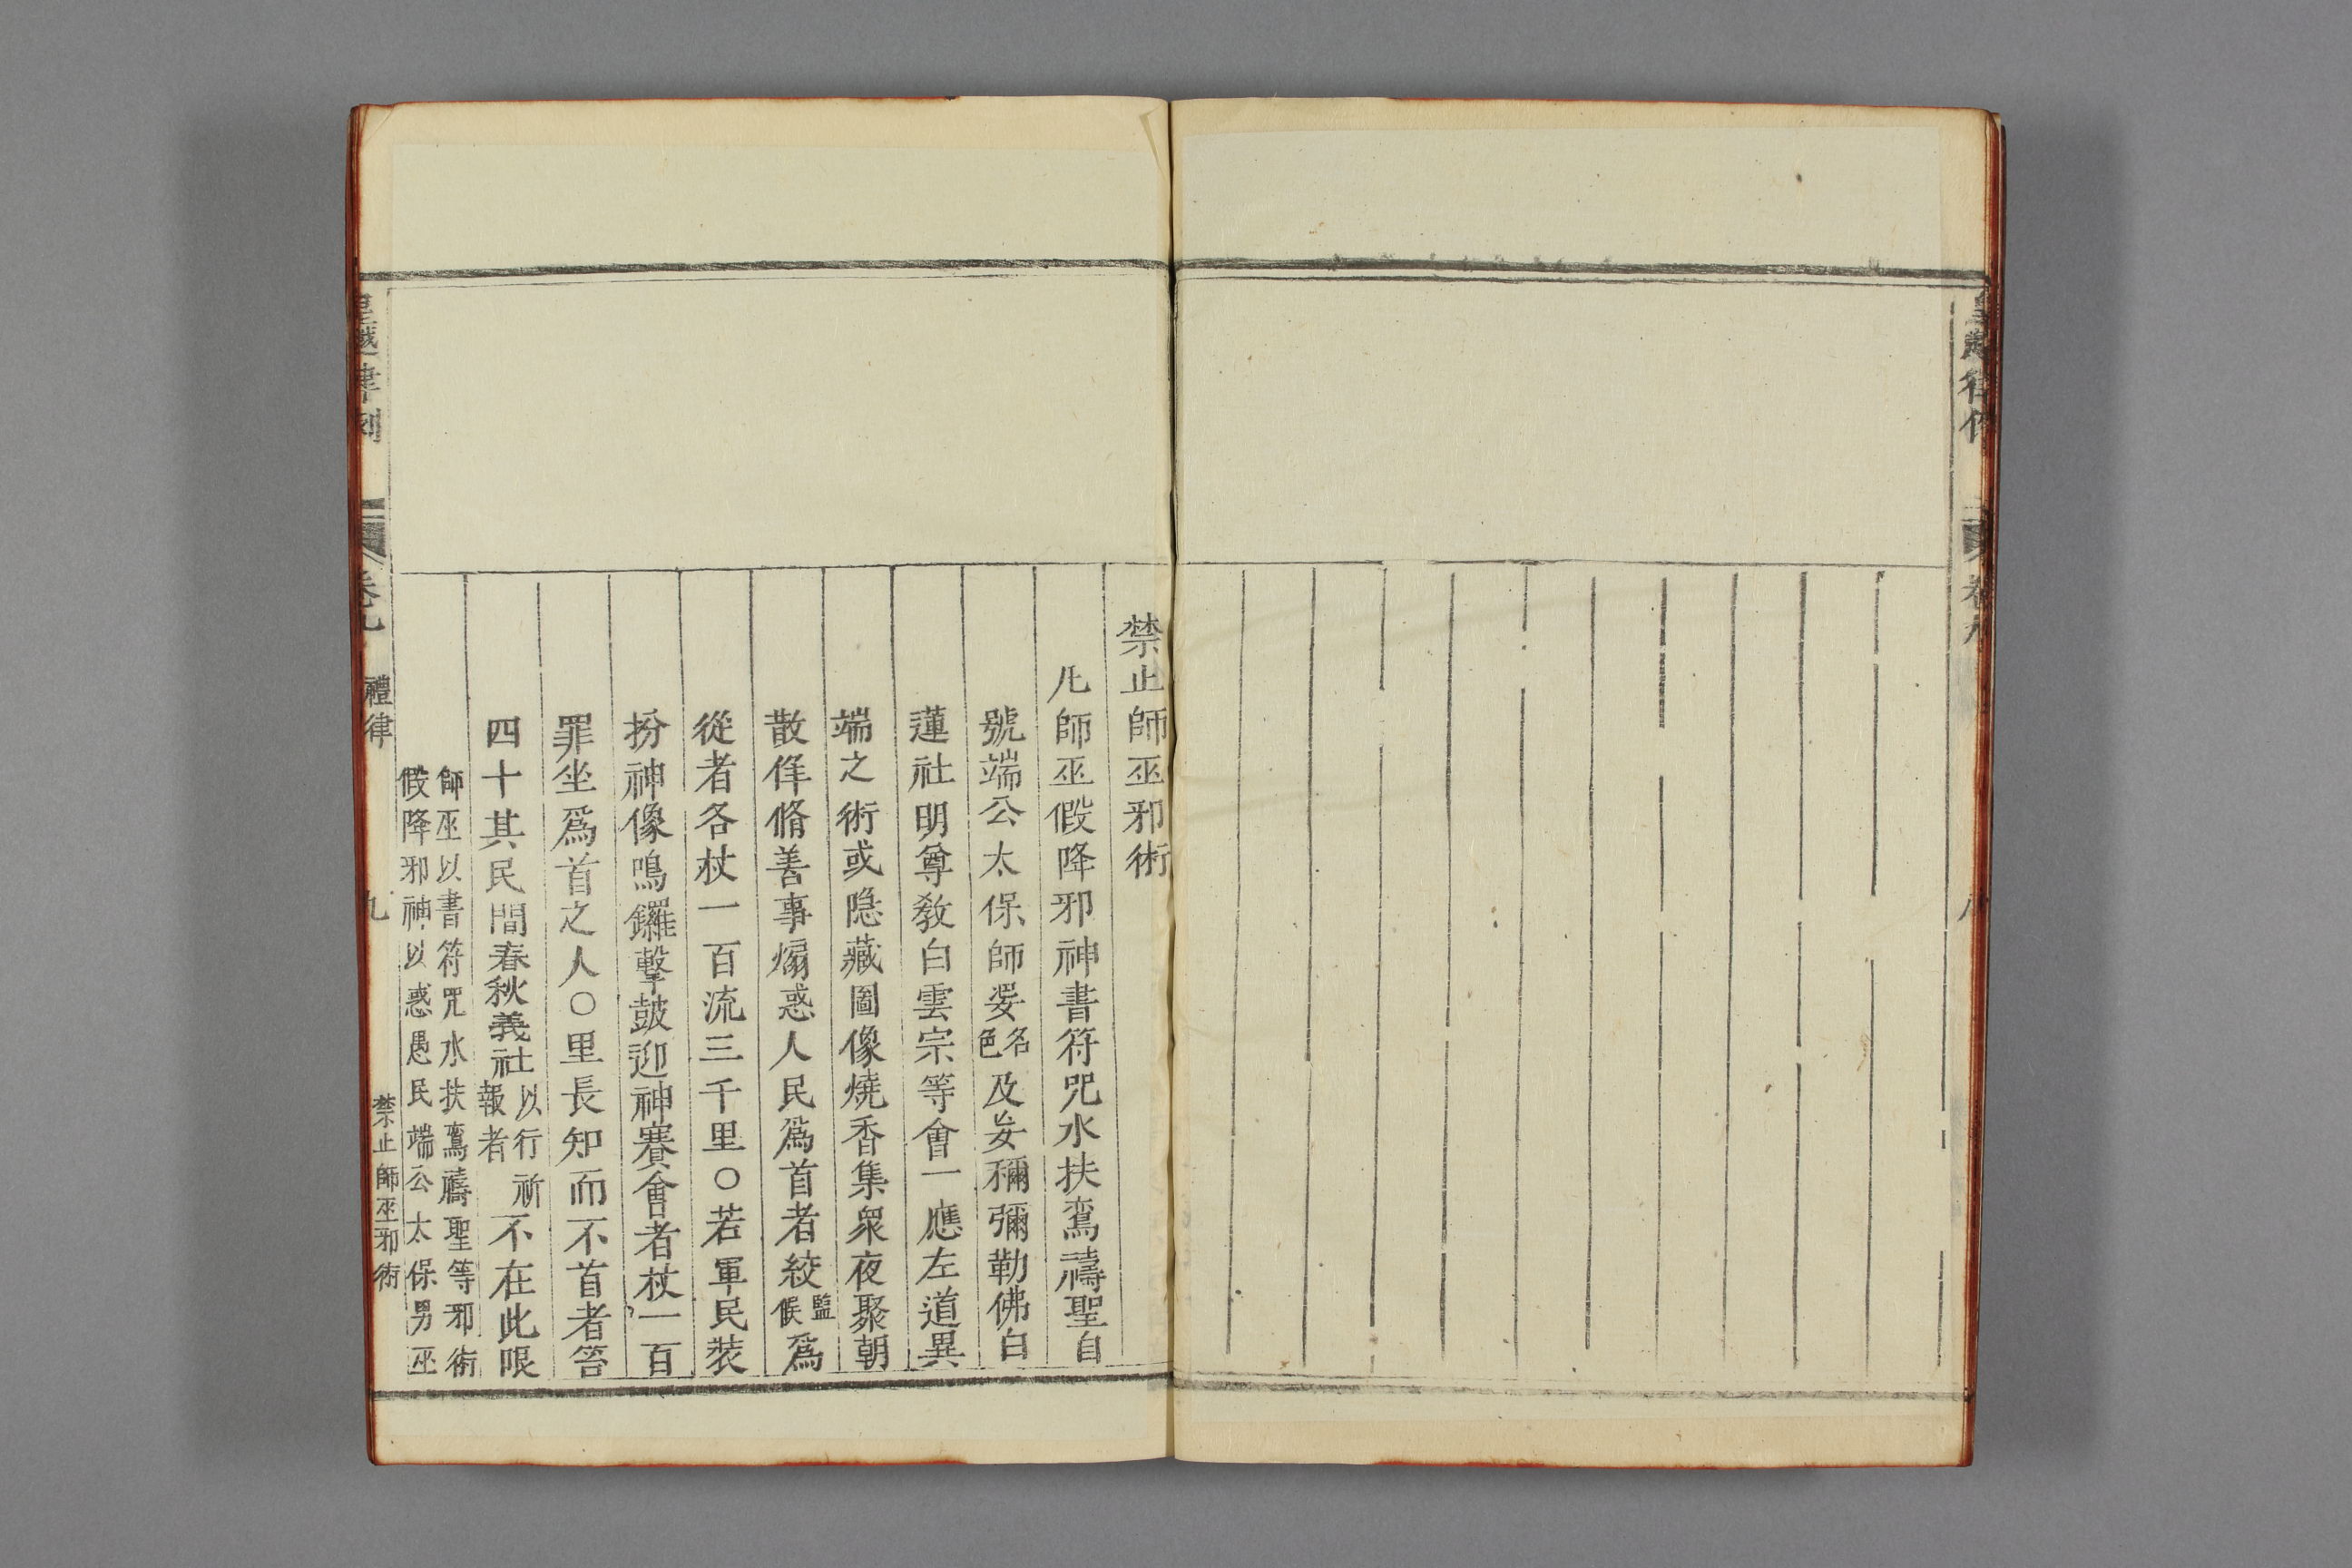 皇越律例
卷九
八
禁止師巫邪術
凢師巫假降邪神書符咒水扶鸞禱聖自
號端公太保師婆名色及妄稱彌勒佛白
蓮社明尊教白雲宗等會一應左道異
端之術或隐藏圖像燒香集衆夜聚朝
散佯脩善事煽惑人民爲首者絞監候爲
從者各杖一百流三千里○若軍民裝
扮神像鳴鑼擊鼓迎神賽會者杖一百
罪坐爲首之人○里長知而不首者笞
四十其民間春秋義社以行祈報者不在此限
師巫以書符咒水扶鸞禱聖等邪術
假降邪神以惑愚民端公太保男巫
皇越律例
卷九
禮律
九
禁止師巫邪術